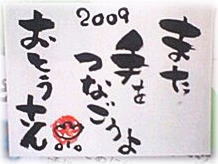 2009
まだ
手を
つなごうよ
おとうさん